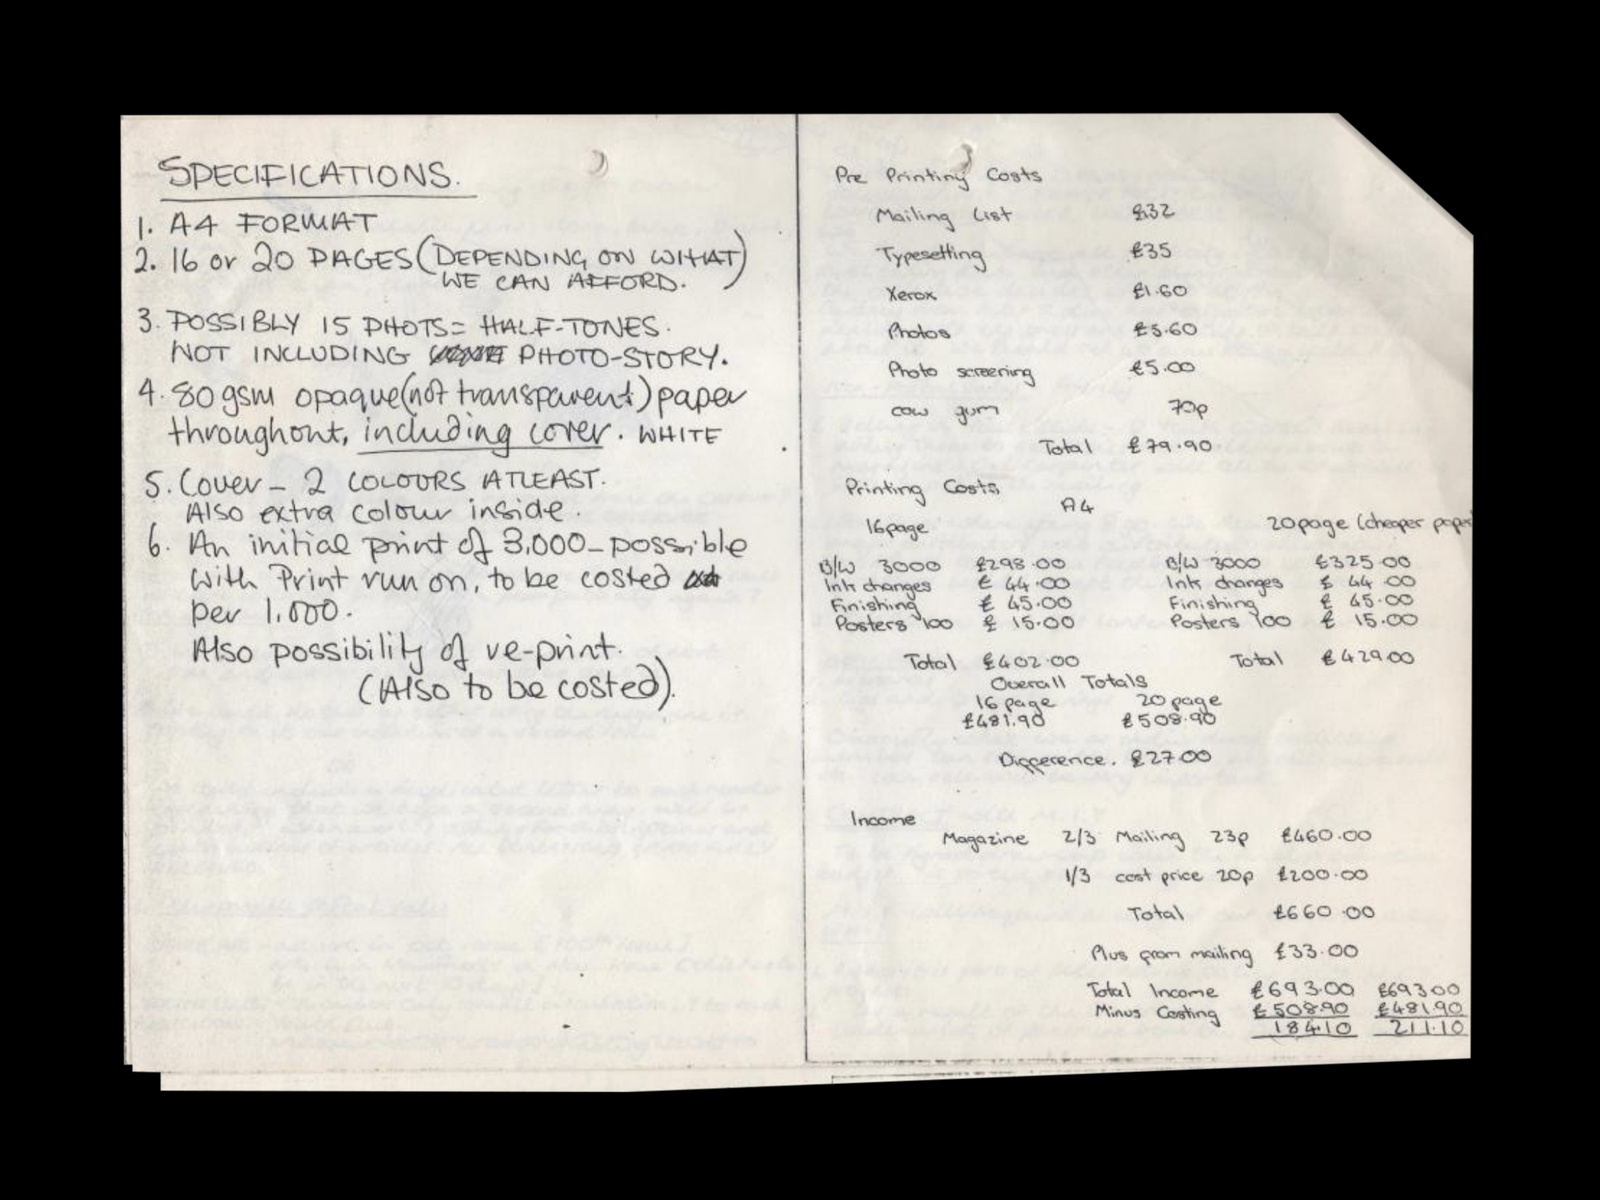 SPECIFICATIONS.
1. A4 FORMAT
2. 16 or 20 PAGES (DEPENDING ON WHAT
WE CAN AFFORD.)
3. POSSIBLY 15 PHOTS = HALF-TONES.
NOT INCLUDING PHOTO-STORY.
4. 80gsm opaque (not transparent) paper
throughout, including cover. WHITE
5. Cover - 2 COLOURS ATLEAST.
Also extra colour inside.
6. An initial print of 3,000 - possible
with Print run on, to be costed
per 1,000.
Also possibility of re-print.
(Also to be costed).
Pre Printing Costs
Mailing List £32
Typesetting £35
Xerox £1.60
Photos £5.60
Photo screening £5.00
cow gum 70p
Total £79.90
Printing Costs
A4
16page 20page (cheaper paper
B/W 3000 £298.00 B/W 3000 £325.00
Ink changes £ 44.00 Ink changes £ 44.00
Finishing £ 45.00 Finishing £ 45.00
Posters 100 £ 15.00 Posters 100 £ 15.00
Total £402.00 Total £429.00
Overall Totals
16 page 20 page
£481.90 £508.90
Difference. £27.00
Income
Magazine 2/3 Mailing 23p £460.00
1/3 cost price 20p £200.00
Total £660.00
Plus from mailing £33.00
Total Income £693.00 £693.00
Minus Costing £508.90 £481.90
184.10 211.10